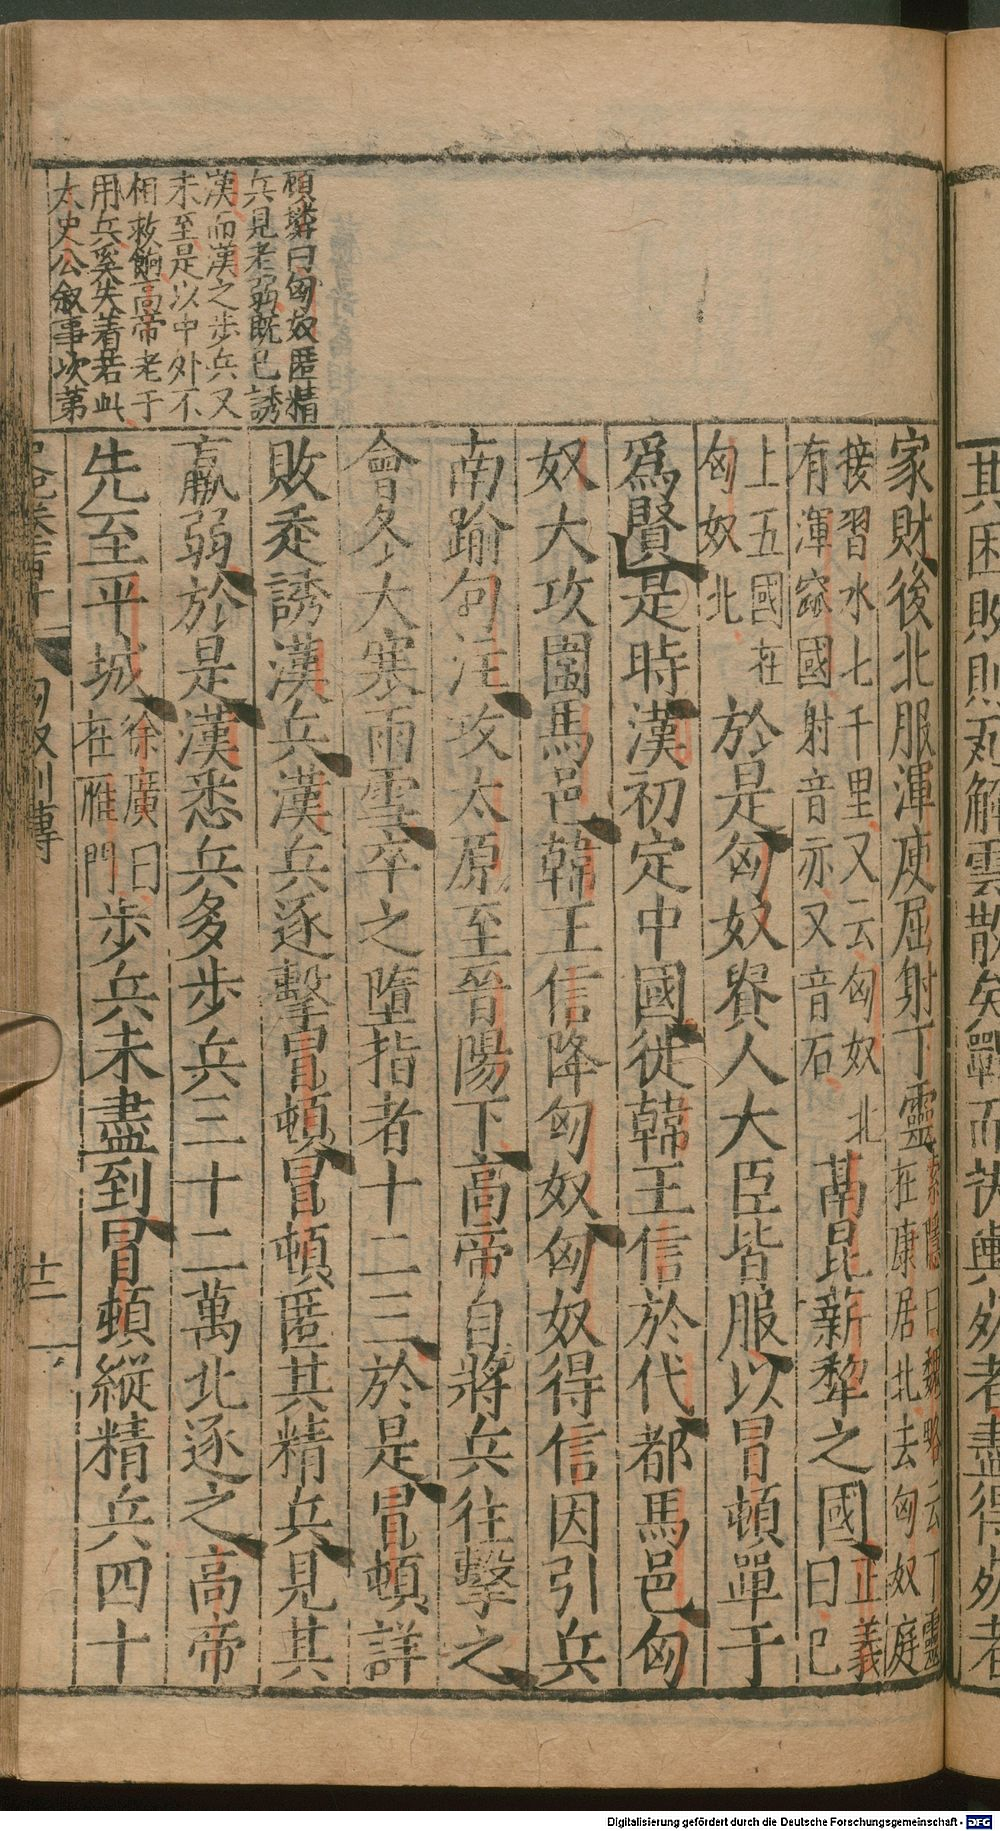 其困敗則瓦解雲散矣戰而扶輿死者盡得死者
顧璘曰匈奴匿精
兵見老弱既已誘
漢而漢之步兵又
未至是以中外不
相救餉高帝老于
用兵奚失着若此
太史公叙事次第
家財後北服渾庾屈射丁靈索隱曰魏略云丁靈在康居北去匈奴庭
接習水七千里又云匈奴北有渾窳國射音亦又音石鬲昆薪犁之國正義曰已
上五國在匈奴北於是匈奴貴人大臣皆服以冒頓單于
爲賢是時漢初定中國徙韓王信於代都馬邑匈
奴大攻圍馬邑韓王信降匈奴匈奴得信因引兵
南踰句注攻太原至晉陽下高帝自將兵往擊之
會冬大寒雨雪卒之墮指者十二三於是冒頓詳
敗走誘漢兵漢兵逐擊冒頓冒頓匿其精兵見其
羸弱於是漢悉兵多步兵三十二萬北逐之高帝
先至平城徐廣曰在雁門步兵未盡到冒頓縱精兵四十
匈奴列傳
十二
Digitalisierung gefördert durch die Deutsche Forschungsgemeinschaft - DFG